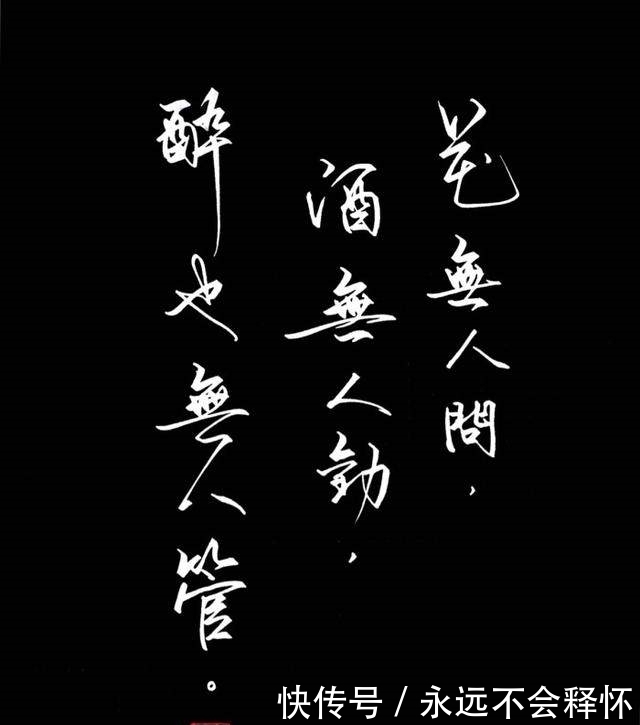 花無人問，
酒無人勸，
醉也無人管。
快传号 / 永远不会释怀